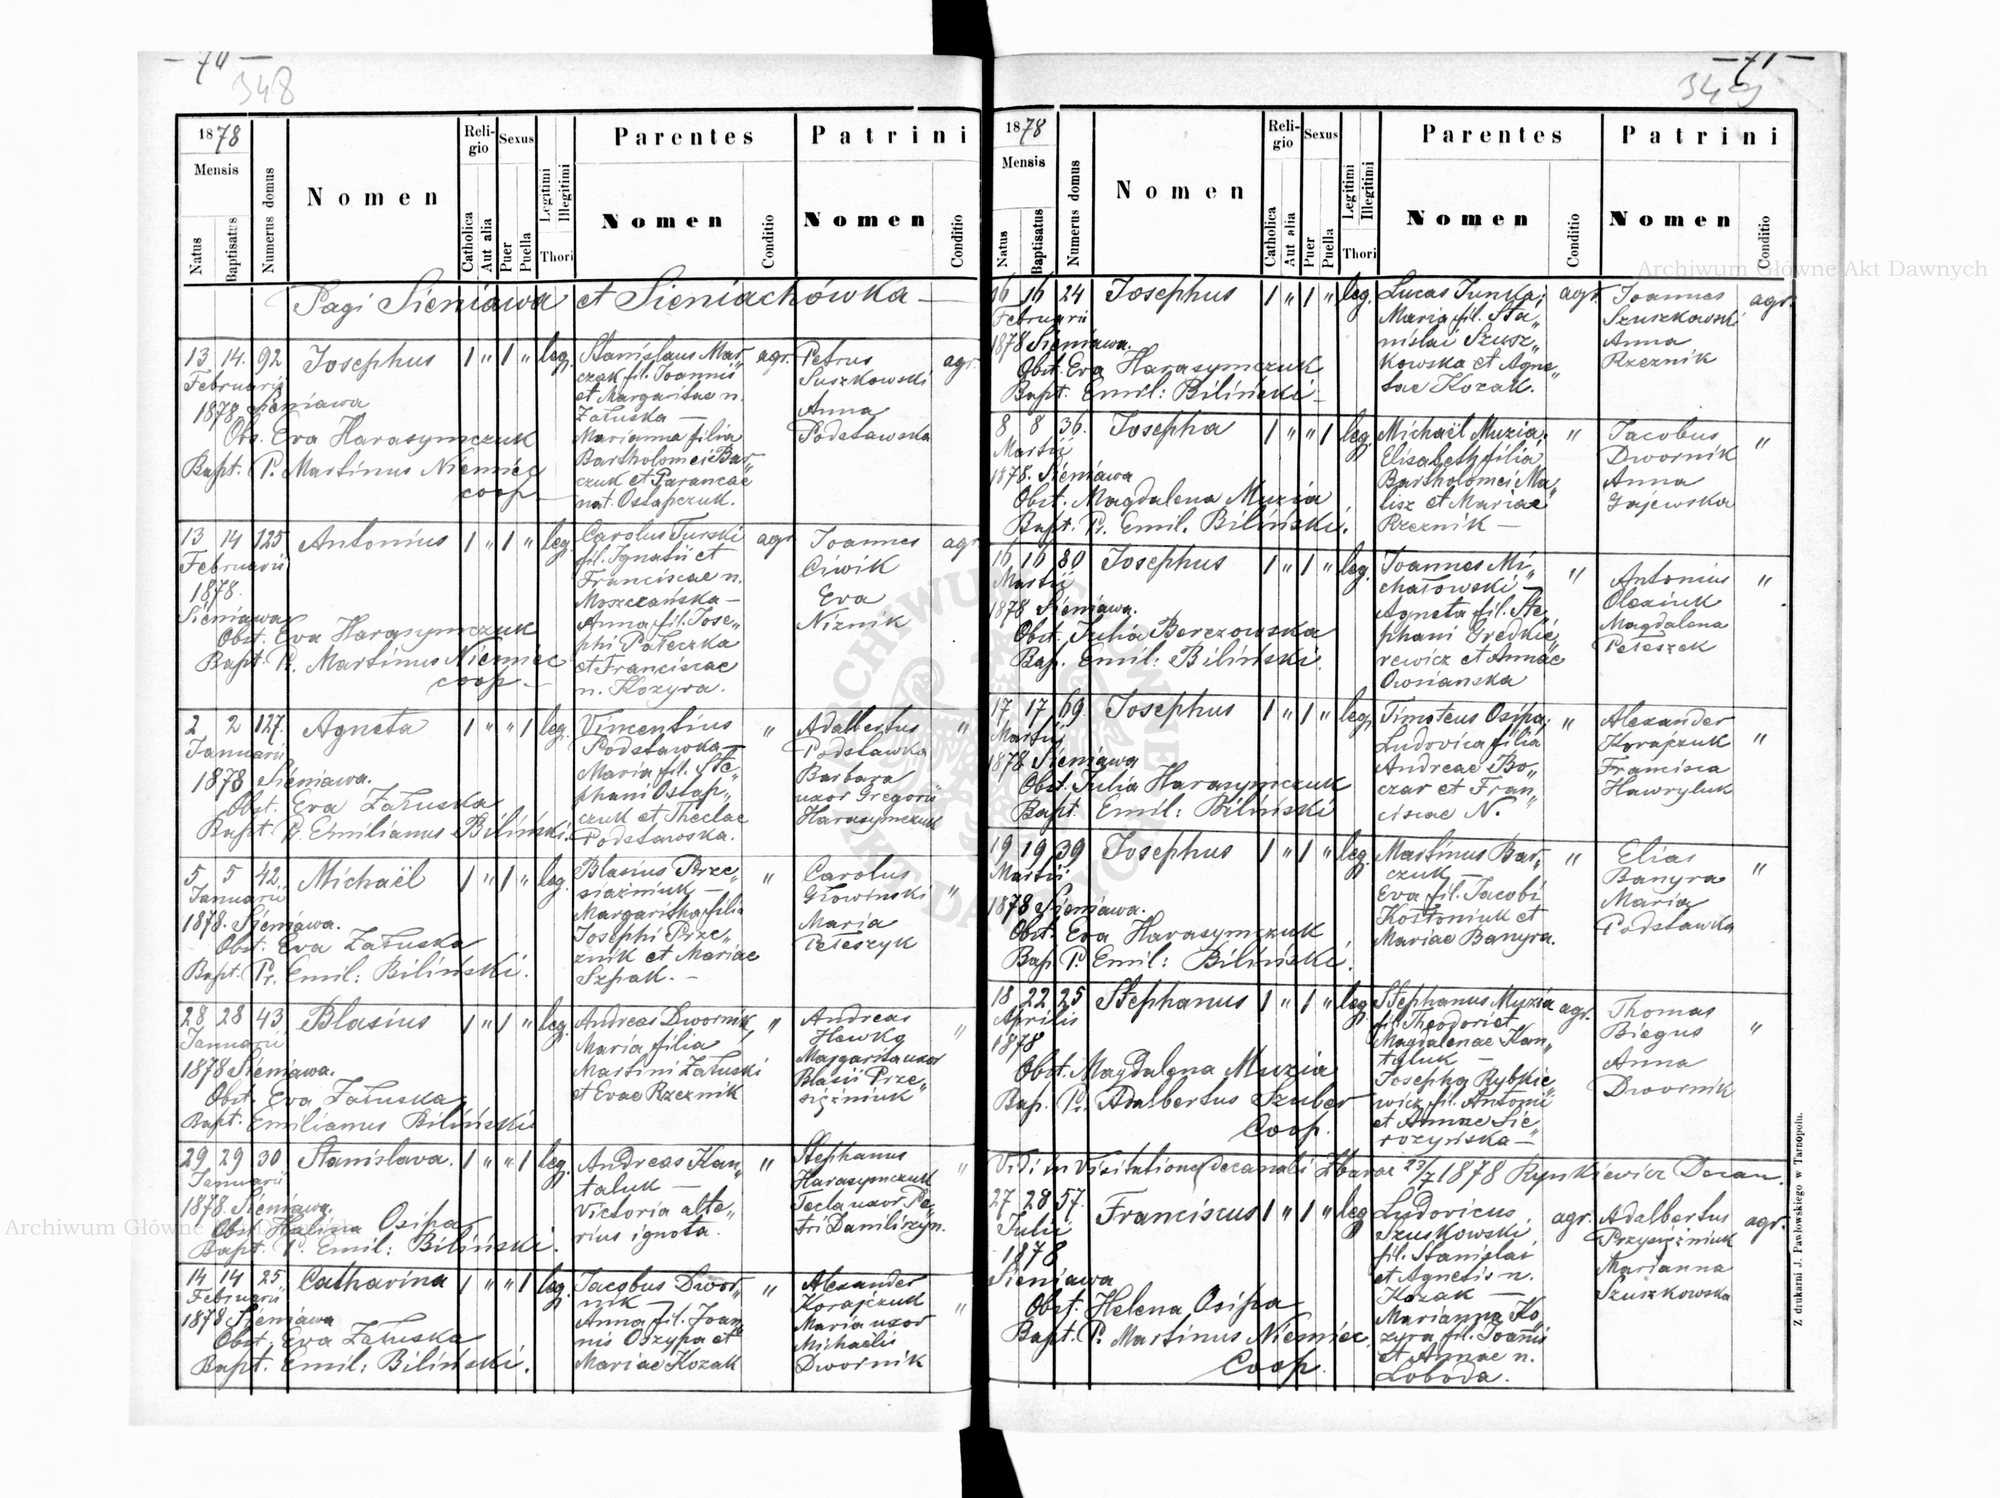 — 70 —
348
1878
Mensis
Natus
Baptisatus
Numerus domus
Nomen
Religio
Catholica
Aut alia
Sexus
Puer
Puella
Legitimi
Illegitimi
Thori
Parentes
Nomen
Conditio
Patrini
Nomen
Conditio
Pagi Sieniawa et Sieniachówka —
13 14. 92 Josephus 1 " 1 " leg.
Februarii
1878 Sieniawa
Obs. Eva Harasymczuk
Bapt. P. Martinus Niemiec
coop —
Stanislaus Mar„
czak fil. Joannis
et Margaritae n.
Załuska —
Marianna filia
Bartholomei Bar„
czuk et Parancae
nat. Ostapczuk.
agr.
Petrus
Suszkowski
Anna
Podstawska
agr.
13 14 125 Antonius 1 " 1 " leg.
Februarii
1878.
Sieniawa
Obst. Eva Harasymczuk
Bapt. P. Martinus Niemiec
coop —
Carolus Turski
fil. Ignatii et
Franciscae n.
Moszczańska —
Anna fil. Jose„
phi Pałeczka
et Franciscae
n. Kozyra.
agr.
Joannes
Ćwik
Eva
Niznik
agr.
2 2 127. Agneta 1 " " 1 leg.
Januarii
1878 Sieniawa.
Obst. Eva Załuska
Bapt. P. Emilianus Biliński.
Vincentius
Podstawka —
Maria fil. Ste„
phani Ostap„
czuk et Theclae
Podstawska.
"
Adalbertus
Podstawka
Barbara
uxor Gregorii
Harasymczuk
"
5 5 42. Michaël 1 " 1 " leg.
Januarii
1878. Sieniawa.
Obst. Eva Załuska
Bapt. Pr. Emil: Biliński.
Blasius Prze„
siaźniuk —
Margaritha filia
Josephi Prze„
znik et Mariae
Szpak. —
"
Carolus
Głowinski
Maria
Pełeszyk
"
28 28 43. Blasius 1 " 1 " leg.
Januarii
1878 Sieniawa.
Obst. Eva Załuska
Bapt. Emilianus Biliński
Andreas Dwornik,
Maria filia
Martini Załuski
et Evae Rzeznik
"
Andreas
Hewko
Margarita uxor
Blasii Prze„
siężniuk
"
29 29 30 Stanislava. 1 " " 1 leg.
Januarii
1878. Sieniawa.
Obst. Halina Osipa
Bapt. P. Emil: Biliński.
Andreas Kan„
taluk —
Victoria alte„
rius ignota.
"
Stephanus
Harasymczuk
Tecla uxor Pe„
tri Danilczyn.
"
14 14 25. Catharina 1 " " 1 leg.
Februarii
1878 Sieniawa
Obst. Eva Załuska
Bapt. Emil: Biliński.
Jacobus Dwor„
nik —
Anna fil. Joan„
nis Oszypa et
Mariae Kozak
"
Alexander
Korajczuk
Maria uxor
Michaelis
Dwornik
"
— 71 —
349
1878
Mensis
Natus
Baptisatus
Numerus domus
Nomen
Religio
Catholica
Aut alia
Sexus
Puer
Puella
Legitimi
Illegitimi
Thori
Parentes
Nomen
Conditio
Patrini
Nomen
Conditio
16 16 24 Josephus 1 " 1 " leg.
Februarii
1878 Sieniawa.
Obst. Eva Harasymczuk
Bapt. Emil: Biliński —
Lucas Junka;
Maria fil. Sta„
nislai Szusz„
kowska et Agne„
tae Kozak.
agr.
Joannes
Szuszkowski
Anna
Rzeznik
agr.
8 8 36. Josepha 1 " " 1 leg.
Martii
1878. Sieniawa
Obst. Magdalena Muzia
Bapt. Pr. Emil. Biliński.
Michaël Muzia;
Elisabeth filia
Bartholomei Ma„
lisz et Mariae
Rzeznik —
"
Jacobus
Dwornik
Anna
Gajewska
"
16 16 80 Josephus 1 " 1 " leg.
Martii
1878 Sieniawa.
Obst. Julia Berezowska
Bap. Emil: Biliński.
Joannes Mi„
chałowski —
Agneta fil. Ste„
phani Gredkie„
rewicz et Annae
Owsianska
"
Antonius
Olexiuk
Magdalena
Pełeszek
"
17 17 69. Josephus 1 " 1 " leg.
Martii
1878 Sieniawa
Obst. Julia Harasymczuk
Bapt. Emil: Biliński
Timoteus Osipa;
Ludovica filia
Andreae Bo„
czar et Fran„
ciscae N.
"
Alexander
Korajczuk
Francisca
Hawryluk
"
19 19 39 Josephus 1 " 1 " leg.
Martii
1878 Sieniawa.
Obst. Eva Harasymczuk
Bap. P. Emil: Biliński.
Martinus Bar„
czuk —
Eva fil. Jacobi
Kostoniuk et
Mariae Banyra.
"
Elias
Banyra
Maria
Podstawka
"
18 22 25 Stephanus 1 " 1 " leg.
Aprilis
1878
Obst. Magdalena Muzia
Bap. Pr. Adalbertus Szuber
Coop.
Stephanus Muzia
fil. Theodori et
Magdalenae Kan„
taluk —
Josepha Rybkie„
wicz fil. Antonii
et Annae Sie„
rozyńska —
agr.
Thomas
Biegus
Anna
Dwornik
"
Vidi in Visitatione decanali Zbaraż 23/7 1878 Rynkiewicz Decan.
27 28 57. Franciscus 1 " 1 " leg.
Julii
1878
Sieniawa
Obst. Helena Osipa
Bapt. P. Martinus Niemiec
Coop.
Ludovicus
Szuszkowski,
fil. Stanislai
et Agnetis n.
Kozak —
Marianna Ko„
zyra fil. Joannis
et Annae n.
Łoboda.
agr.
Adalbertus
Przysiężniuk
Marianna
Szuszkowska
agr.
Z drukarni J. Pawłowskiego w Tarnopolu.
Archiwum Główne Akt Dawnych
Archiwum Główne Akt Dawnych